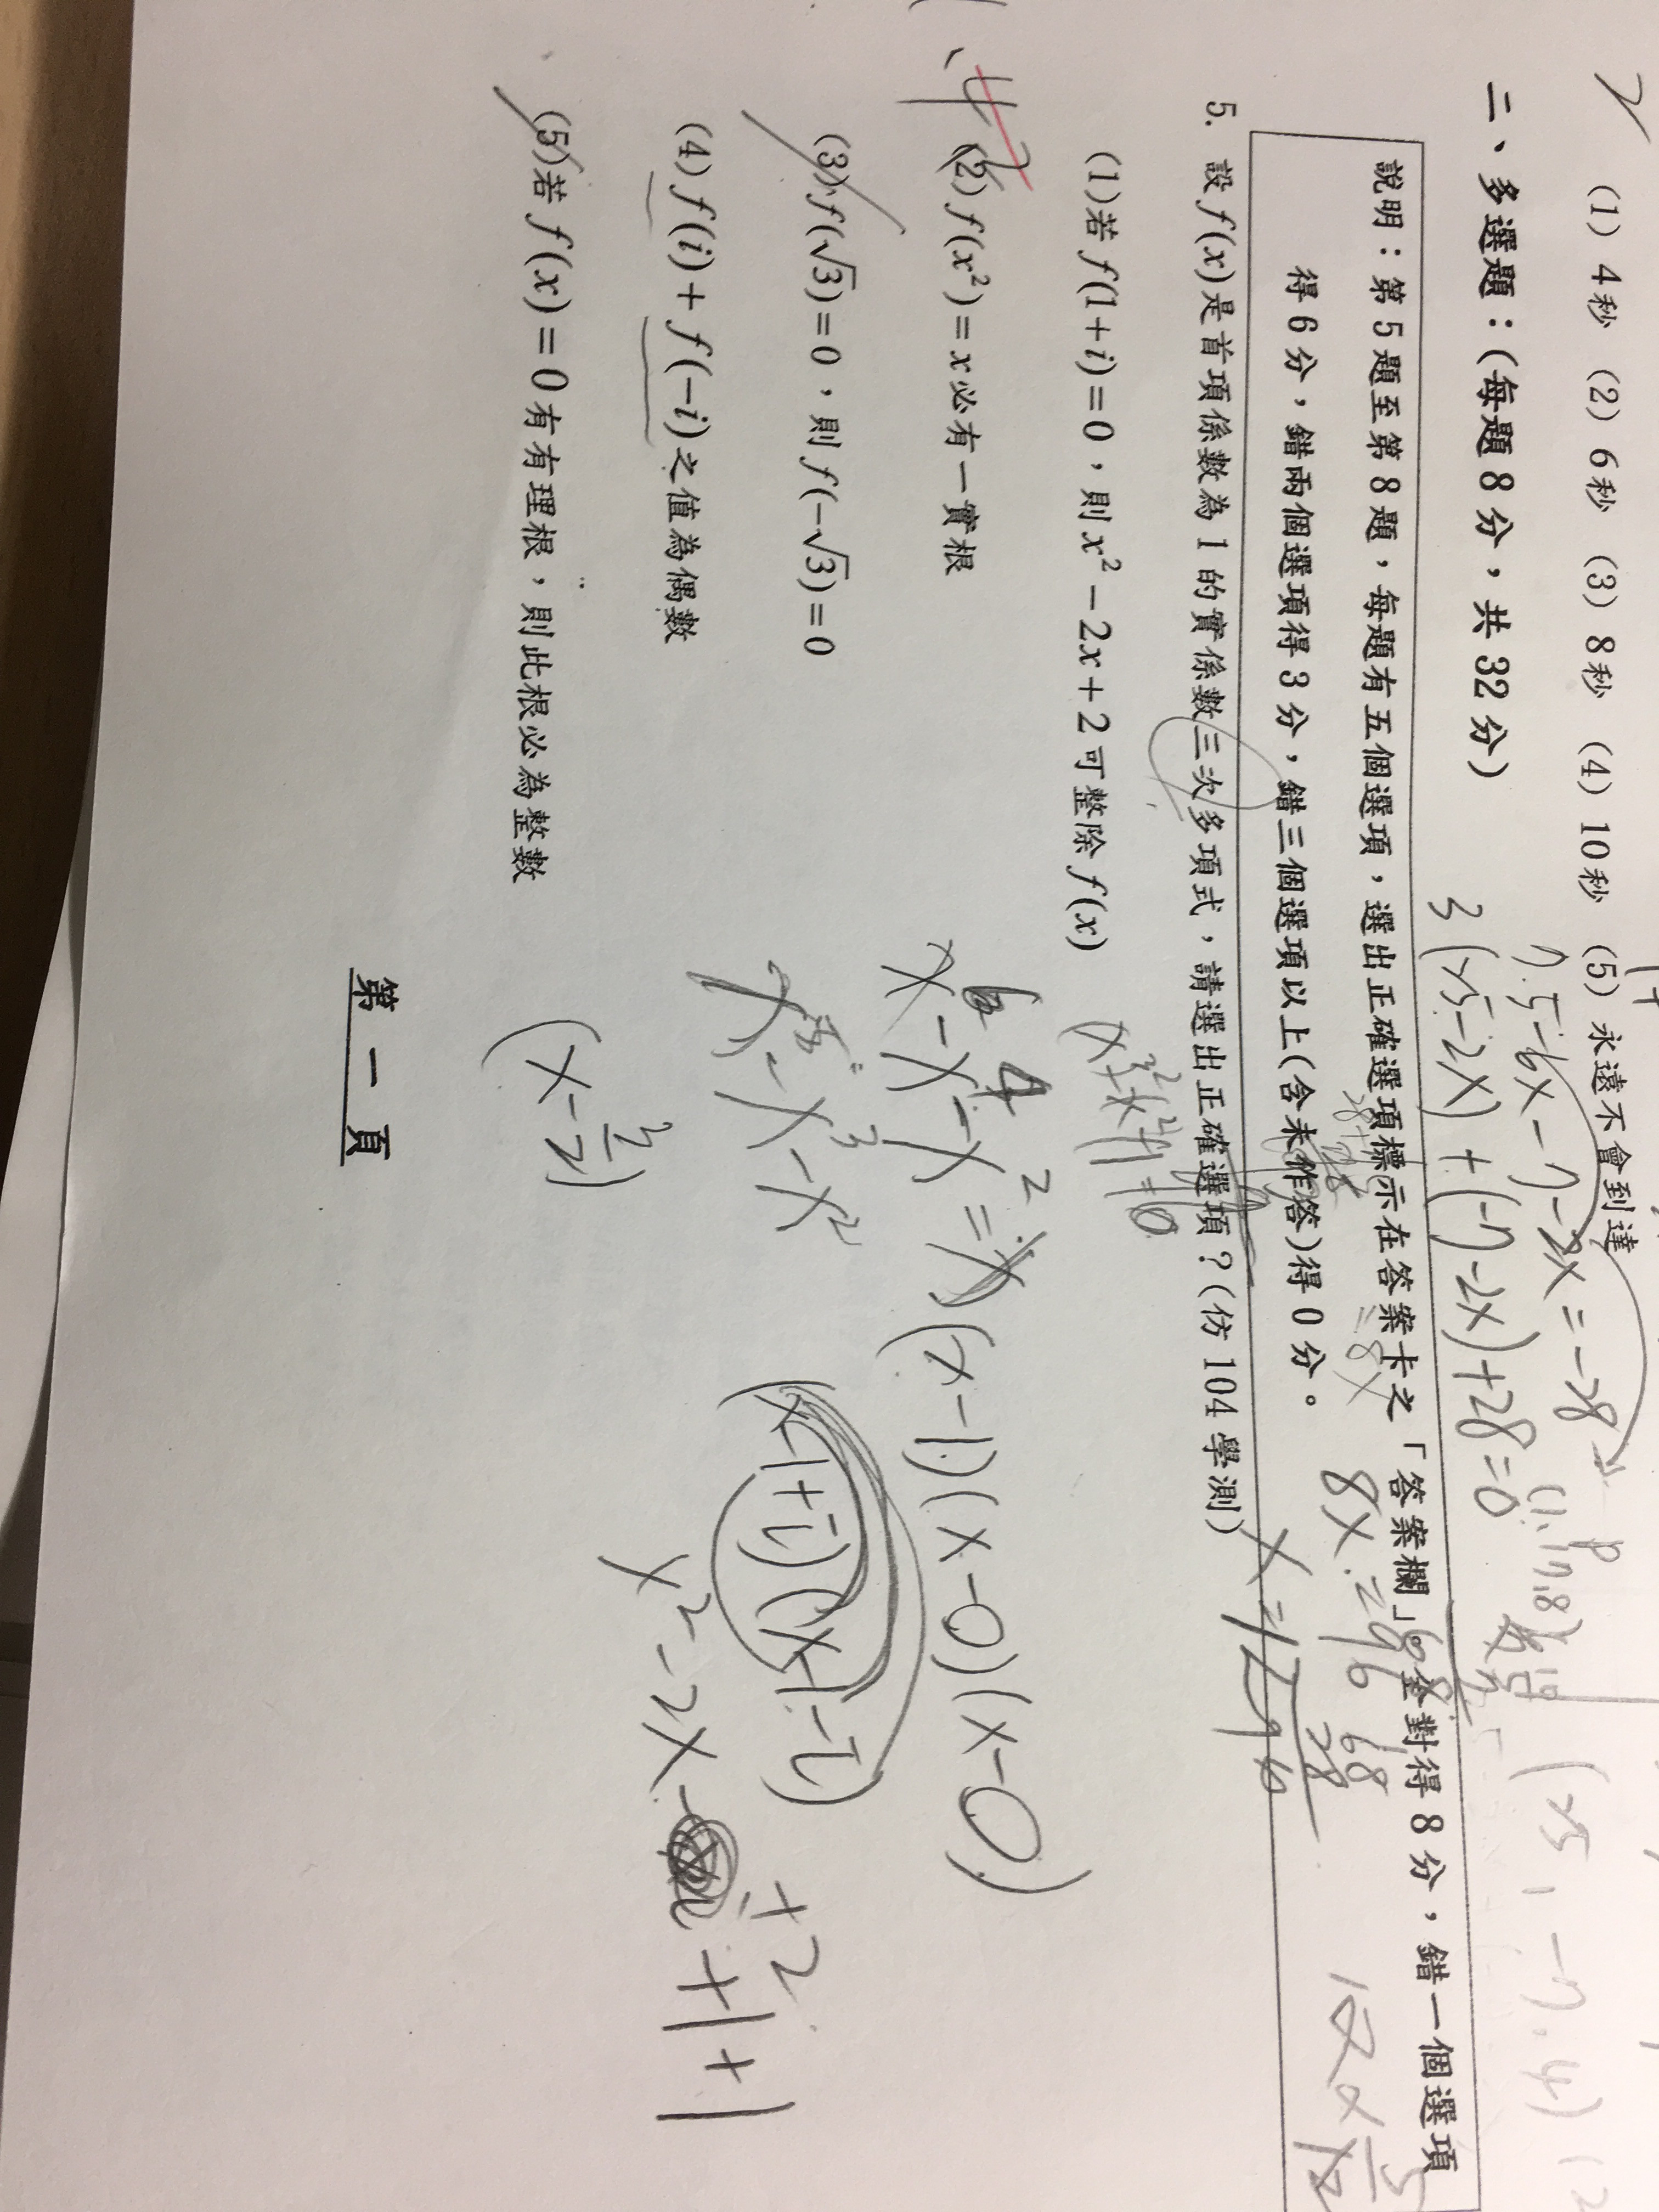 (1) 4秒 (2) 6秒 (3) 8秒 (4) 10秒 (5) 永遠不會到達
7.5-6x-7-2x=-28
3(25-2x)+(-7-2x)+28=0
二、多選題：(每題8分，共32分)
說明：第5題至第8題，每題有五個選項，選出正確選項標示在答案卡之「答案欄」。全對得8分，錯一個選項
得6分，錯兩個選項得3分，錯三個選項以上(含未作答)得0分。
8x=96
68
28
96
x=12
5. 設f(x)是首項係數為1的實係數三次多項式，請選出正確選項？(仿104學測)
(1)若f(1+i)=0，則x²-2x+2可整除f(x)
(2) f(x²)=x必有一實根
x⁶-x⁴-x²=x
(x-1)(x-0)(x-0)
(3) f(√3)=0，則f(-√3)=0
(x-1+i)(x-1-i)
+2
(4) f(i)+f(-i)之值為偶數
x²-2x-
+1+1
(5)若f(x)=0有有理根，則此根必為整數
第一頁